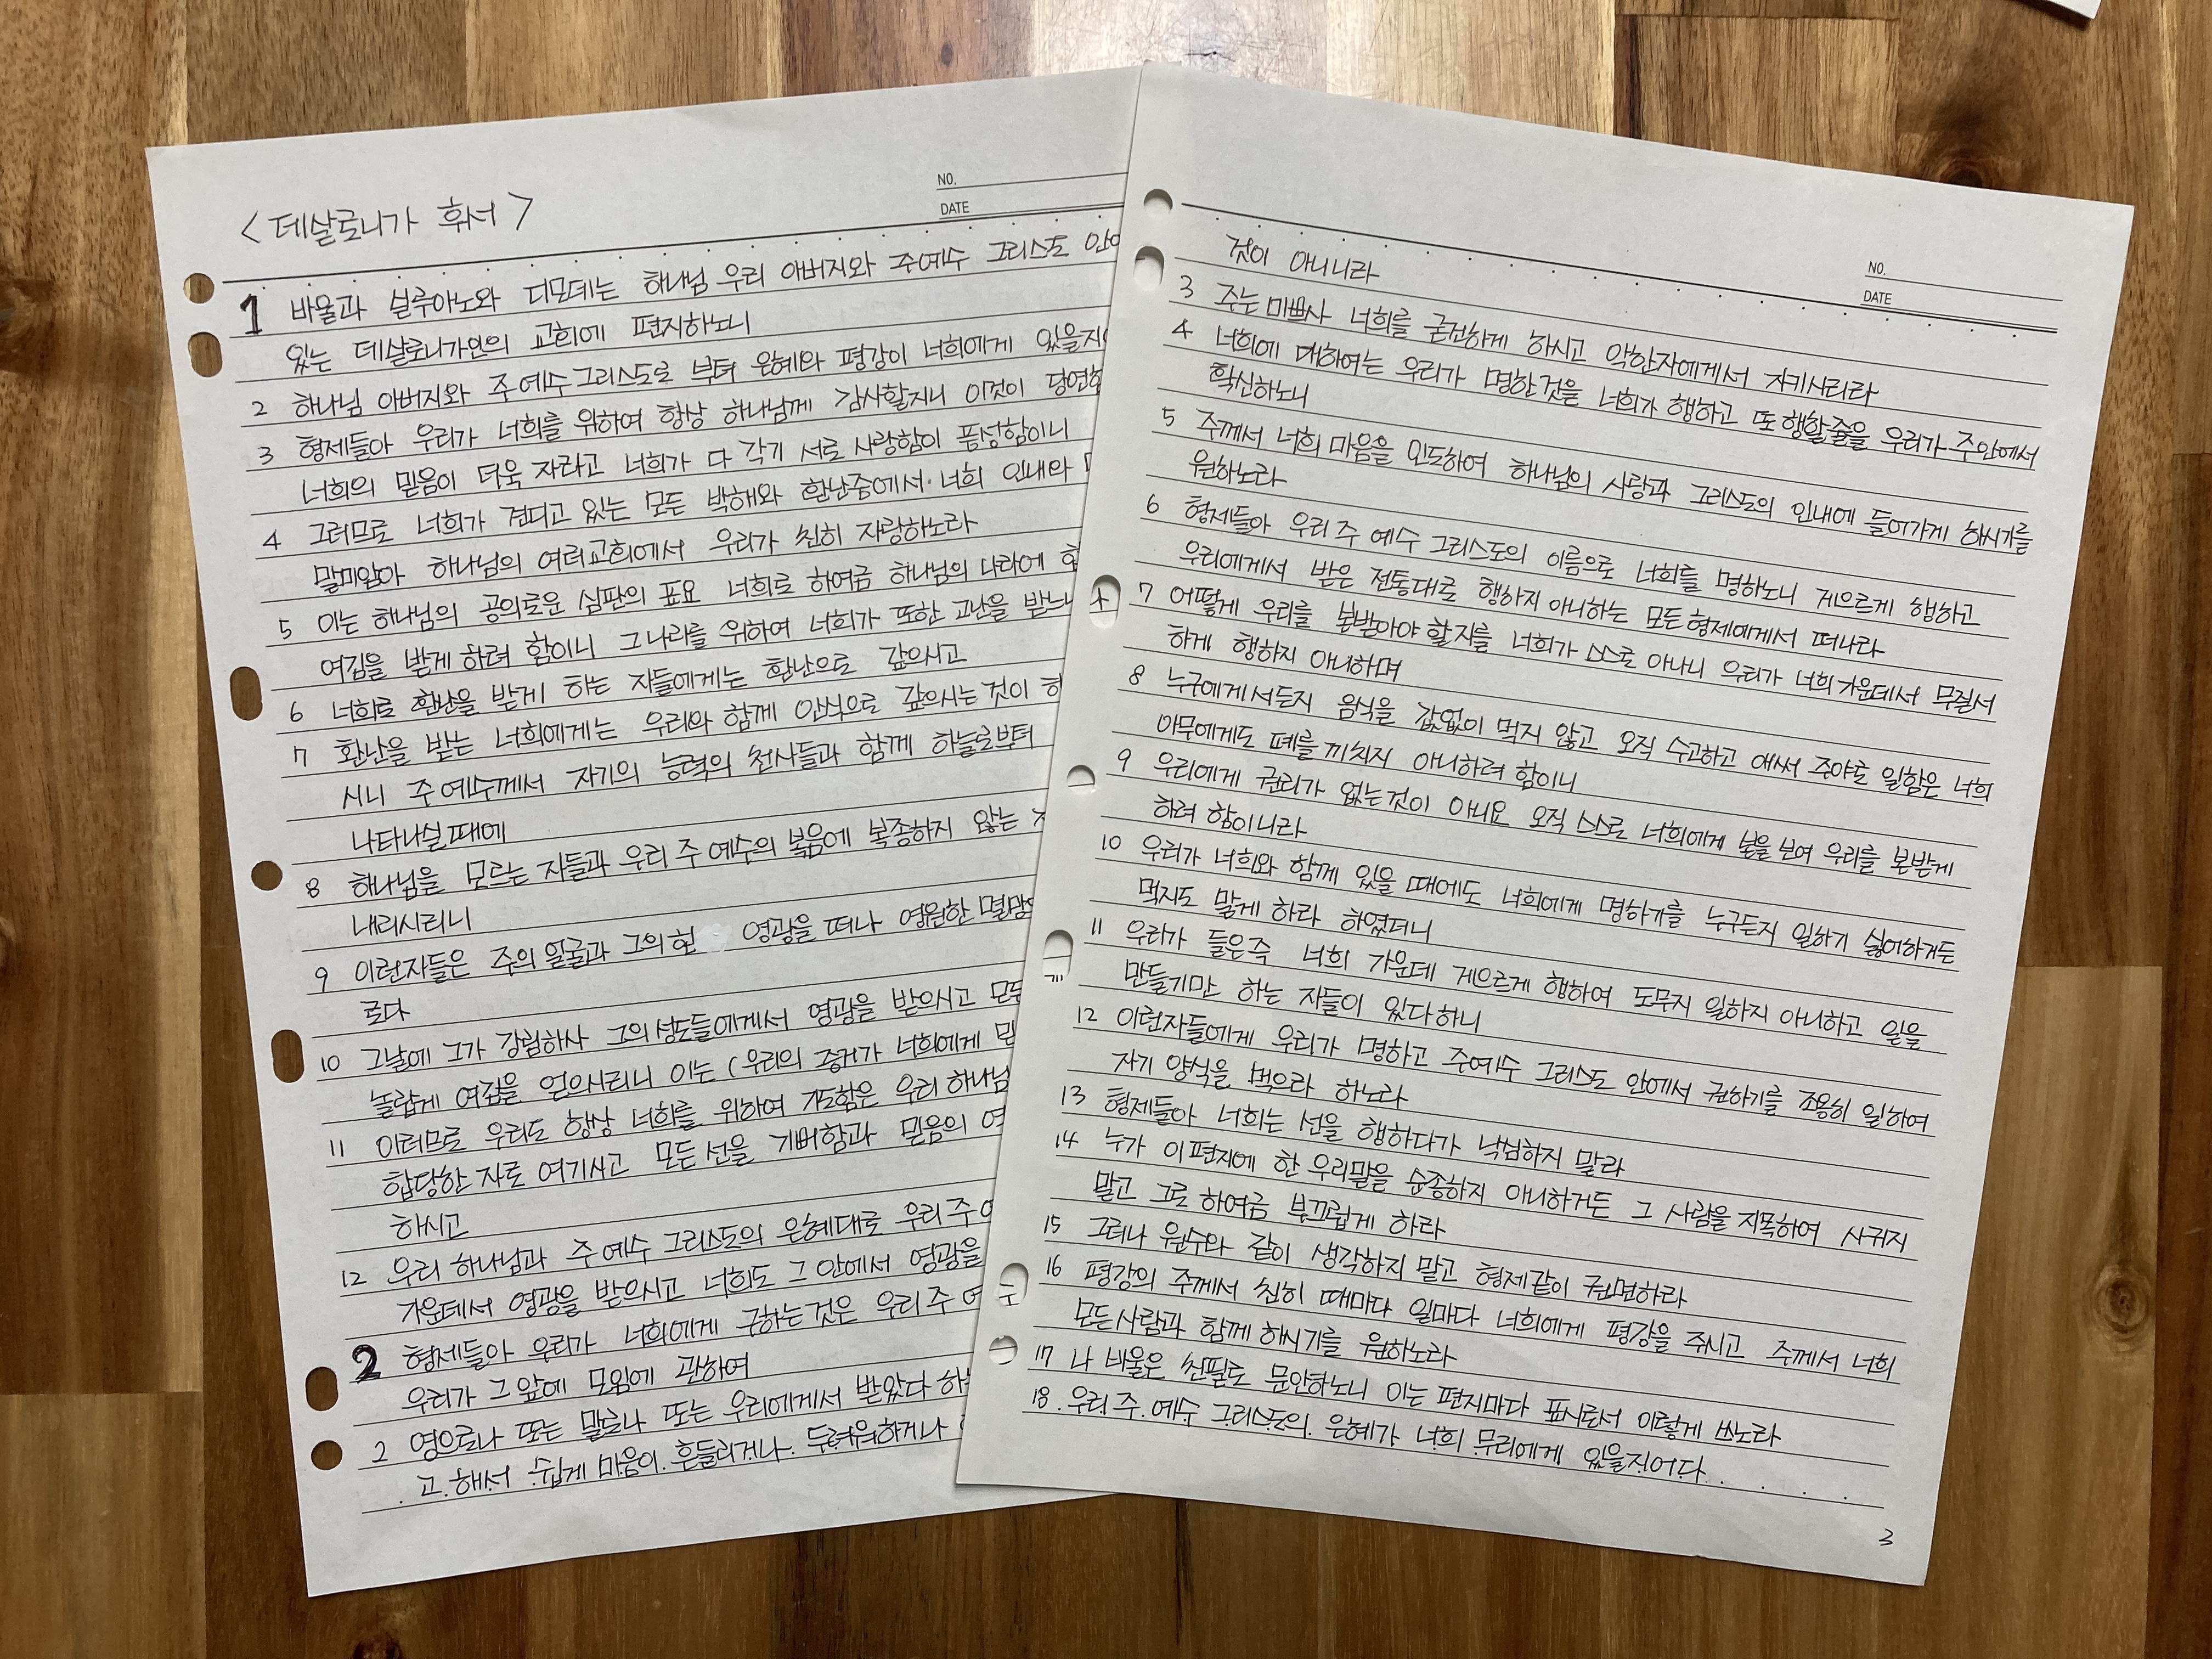 NO.
DATE
< 데살로니가 후서 >
1 바울과 실루아노와 디모데는 하나님 우리 아버지와 주 예수 그리스도 안에
있는 데살로니가인의 교회에 편지하노니
2 하나님 아버지와 주 예수 그리스도로 부터 은혜와 평강이 너희에게 있을지
3 형제들아 우리가 너희를 위하여 항상 하나님께 감사할지니 이것이
너희의 믿음이 더욱 자라고 너희가 다 각기 서로 사랑함이 풍성함이니
4 그러므로 너희가 견디고 있는 모든 박해와 환난중에서 너희 인내와
말미암아 하나님의 여러교회에서 우리가 친히 자랑하노라
5 이는 하나님의 공의로운 심판의 표요 너희로 하여금 하나님의 나라에
여김을 받게 하려 함이니 그 나라를 위하여 너희가 또한 고난을
6 너희로 환난을 받게 하는 자들에게는 환난으로 갚으시고
7 환난을 받는 너희에게는 우리와 함께 안식으로 갚으시는 것이
시니 주 예수께서 자기의 능력의 천사들과 함께 하늘로부터
나타나실때에
8 하나님을 모르는 자들과 우리 주 예수의 복음에 복종하지 않는
내리시리니
9 이런자들은 주의 얼굴과 그의 현 영광을 떠나 영원한
로다
10 그날에 그가 강림하사 그의 성도들에게서 영광을 받으시고 모든
놀랍게 여김을 얻으시리니 이는 (우리의 증거가 너희에게
11 이러므로 우리도 항상 너희를 위하여 기도함은 우리 하나님
합당한 자로 여기시고 모든 선을 기뻐함과 믿음의
하시고
12 우리 하나님과 주 예수 그리스도의 은혜대로 우리 주
가운데서 영광을 받으시고 너희도 그 안에서 영광을
2 형제들아 우리가 너희에게 구하는 것은 우리 주
우리가 그 앞에 모임에 관하여
2 영으로나 또는 말로나 또는 우리에게서 받았다
고 해서 쉽게 마음이 흔들리거나 두려워하거나
NO.
DATE
것이 아니니라
3 주는 미쁘사 너희를 굳건하게 하시고 악한자에게서 지키시리라
4 너희에 대하여는 우리가 명한것을 너희가 행하고 또 행할줄을 우리가 주안에서
확신하노니
5 주께서 너희 마음을 인도하여 하나님의 사랑과 그리스도의 인내에 들어가게 하시기를
원하노라
6 형제들아 우리 주 예수 그리스도의 이름으로 너희를 명하노니 게으르게 행하고
우리에게서 받은 전통대로 행하지 아니하는 모든 형제에게서 떠나라
7 어떻게 우리를 본받아야 할지를 너희가 스스로 아나니 우리가 너희 가운데서 무질서
하게 행하지 아니하며
8 누구에게서든지 음식을 값없이 먹지 않고 오직 수고하고 애써 주야로 일함은 너희
아무에게도 폐를 끼치지 아니하려 함이니
9 우리에게 권리가 없는것이 아니요 오직 스스로 너희에게 본을 보여 우리를 본받게
하려 함이니라
10 우리가 너희와 함께 있을 때에도 너희에게 명하기를 누구든지 일하기 싫어하거든
먹지도 말게 하라 하였더니
11 우리가 들은즉 너희 가운데 게으르게 행하여 도무지 일하지 아니하고 일을
만들기만 하는 자들이 있다하니
12 이런자들에게 우리가 명하고 주예수 그리스도 안에서 권하기를 조용히 일하여
자기 양식을 먹으라 하노라
13 형제들아 너희는 선을 행하다가 낙심하지 말라
14 누가 이 편지에 한 우리말을 순종하지 아니하거든 그 사람을 지목하여 사귀지
말고 그로 하여금 부끄럽게 하라
15 그러나 원수와 같이 생각하지 말고 형제같이 권면하라
16 평강의 주께서 친히 때마다 일마다 너희에게 평강을 주시고 주께서 너희
모든사람과 함께 하시기를 원하노라
17 나 바울은 친필로 문안하노니 이는 편지마다 표시로서 이렇게 쓰노라
18. 우리 주 예수 그리스도의 은혜가 너희 무리에게 있을지어다
3